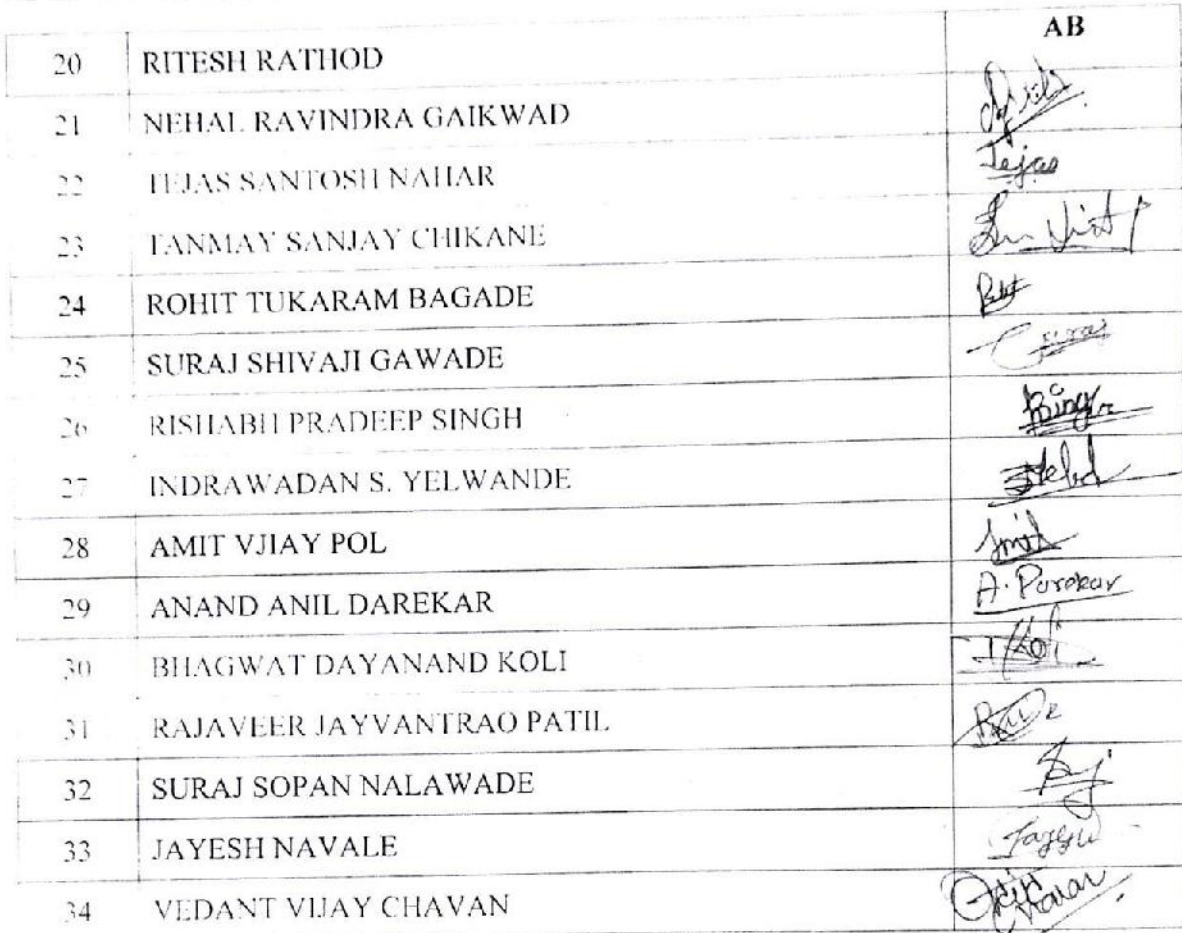 20 RITESH RATHOD AB
21 NEHAL RAVINDRA GAIKWAD
22 TEJAS SANTOSH NAHAR Tejas
23 TANMAY SANJAY CHIKANE
24 ROHIT TUKARAM BAGADE
25 SURAJ SHIVAJI GAWADE
26 RISHABH PRADEEP SINGH
27 INDRAWADAN S. YELWANDE
28 AMIT VJIAY POL
29 ANAND ANIL DAREKAR
30 BHAGWAT DAYANAND KOLI
31 RAJAVEER JAYVANTRAO PATIL
32 SURAJ SOPAN NALAWADE
33 JAYESH NAVALE
34 VEDANT VIJAY CHAVAN